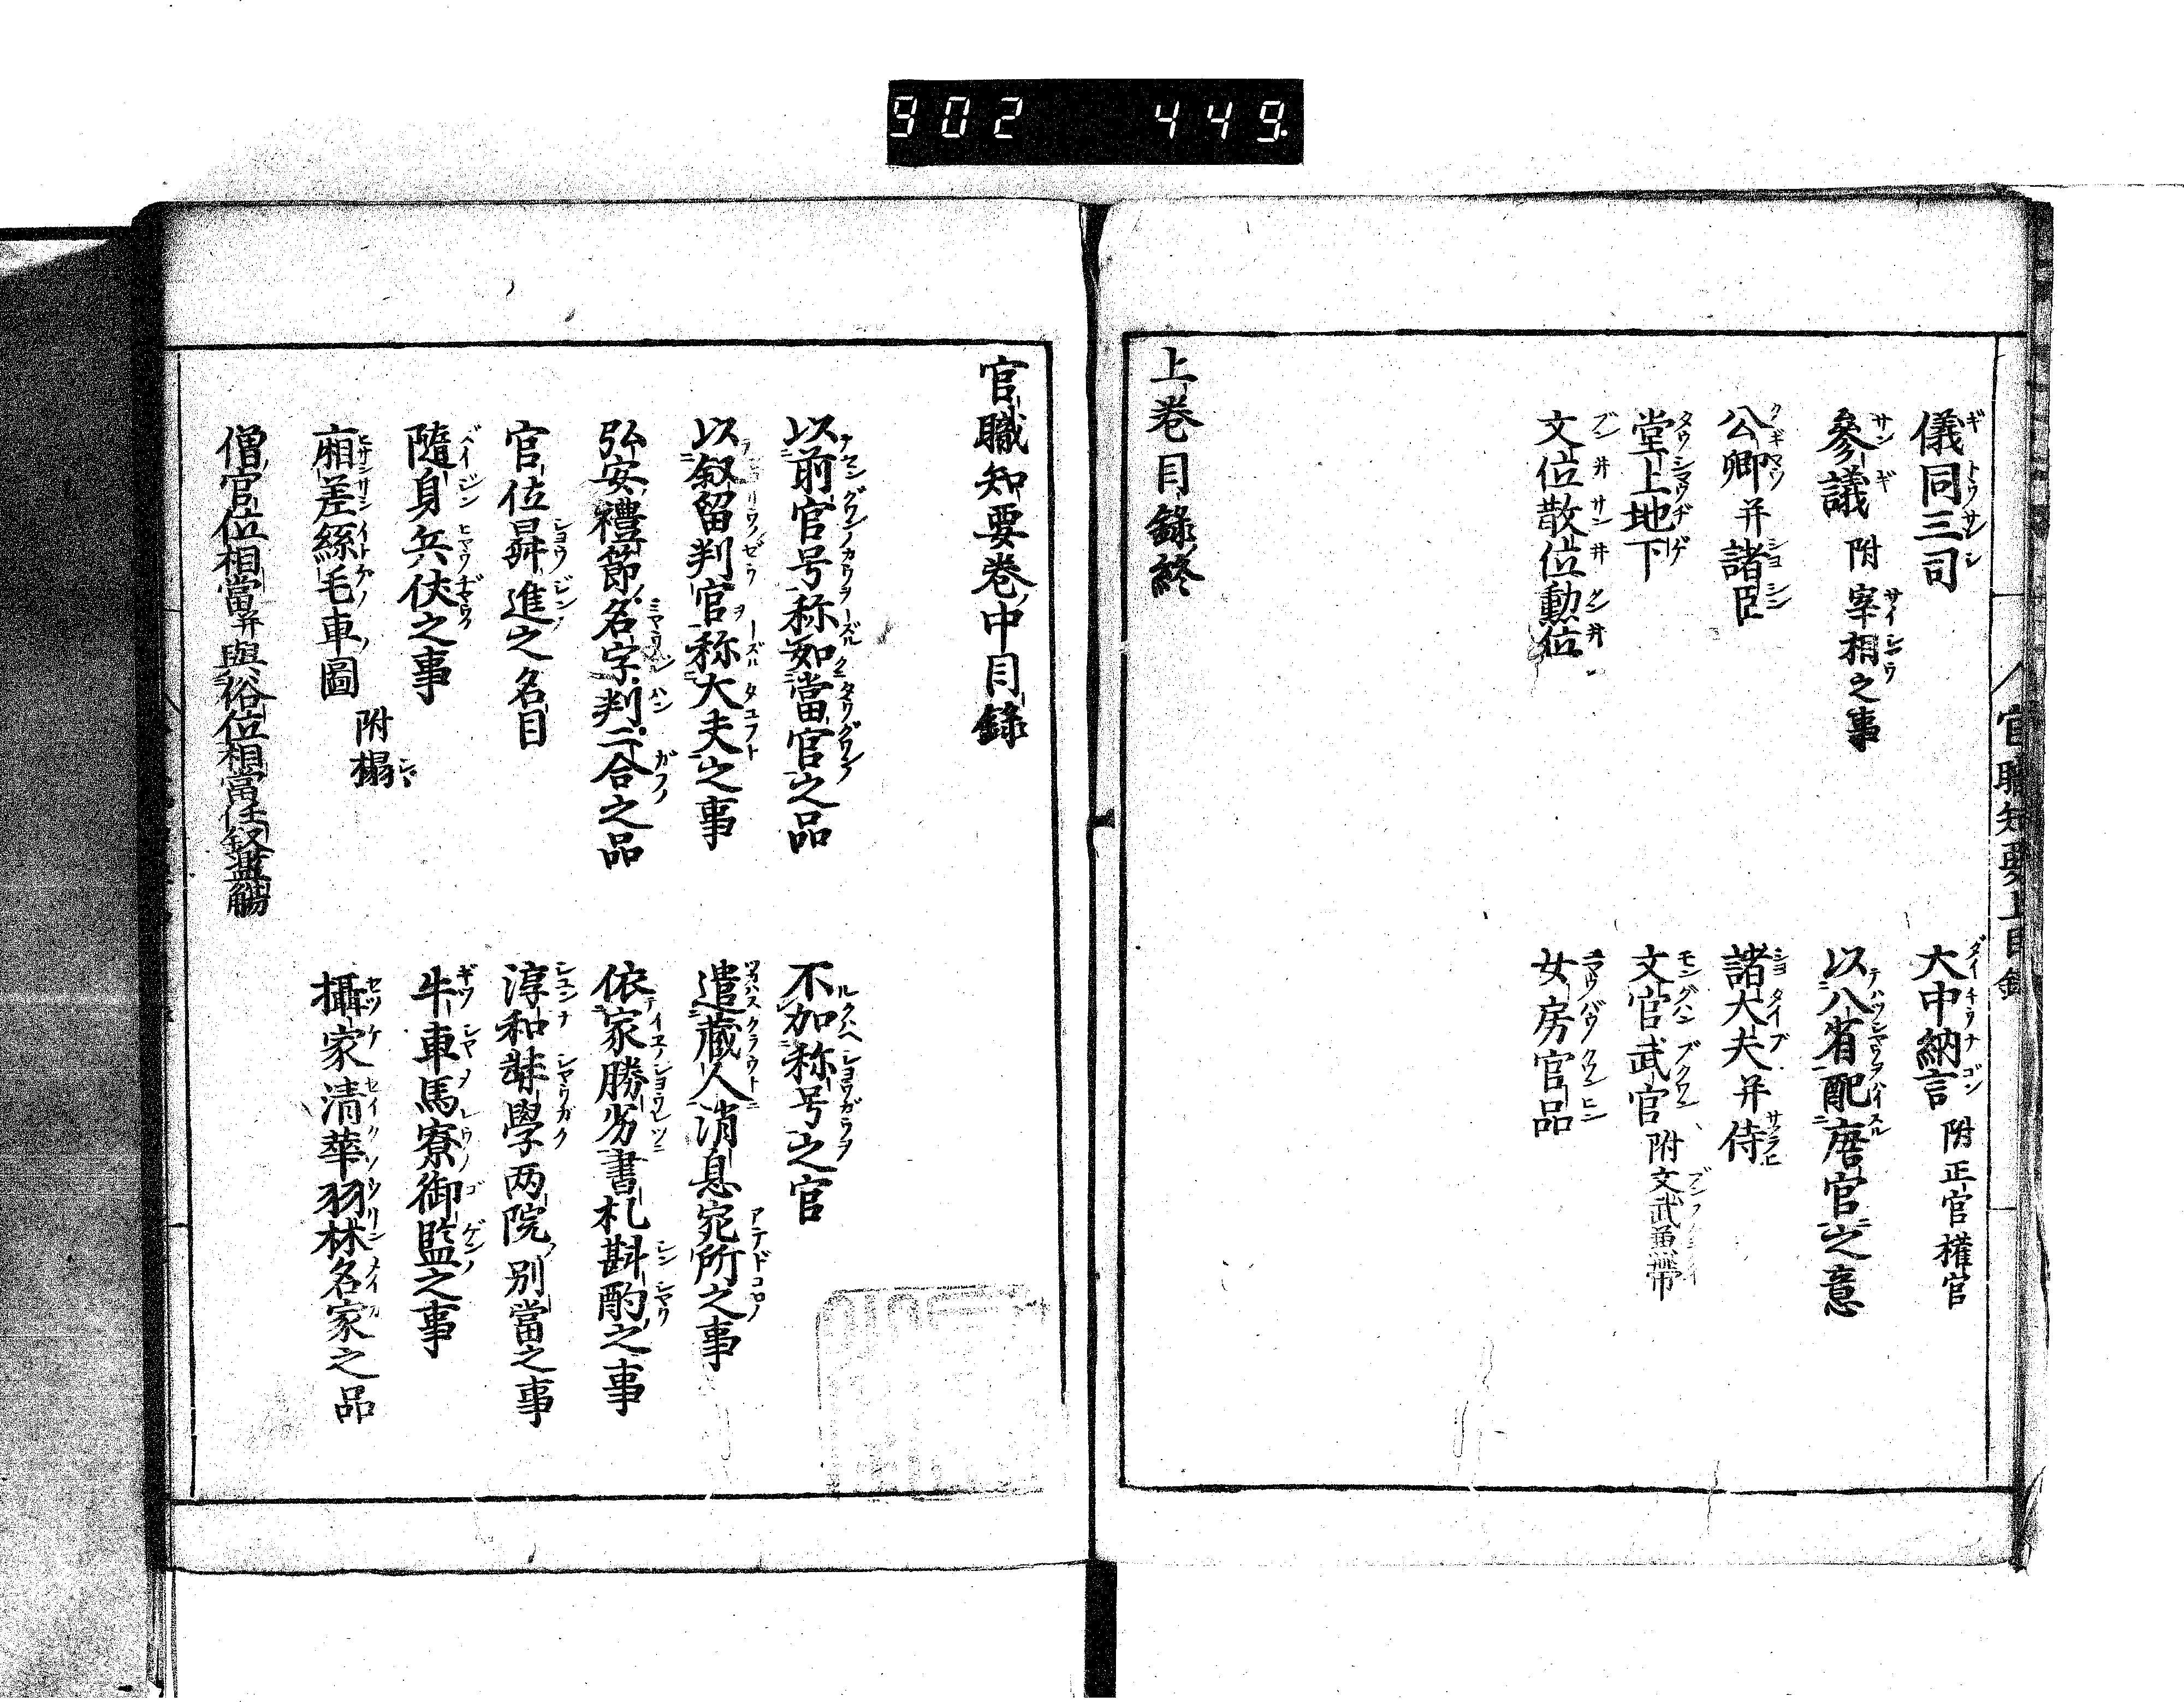 902 449
官職知要上目録
儀同三司
大中納言 附正官權官
參議 附宰相之事
以八省配唐官之意
公卿并諸臣
諸大夫并侍
堂上地下
文官武官 附文武兼帶
文位散位勳位
女房官品
上卷目錄終
官職知要卷中目錄
以前官号称如當官之品
不加称号之官
以叙留判官称大夫之事
遣藏人消息宛所之事
弘安禮節名字判二合之品
依家勝劣書札斟酌之事
官位昇進之名目
淳和奘學两院別當之事
隨身兵仗之事
牛車馬寮御監之事
廂差絲毛車圖 附榻
攝家清華羽林名家之品
僧官位相當并與俗位相當任叙濫觴